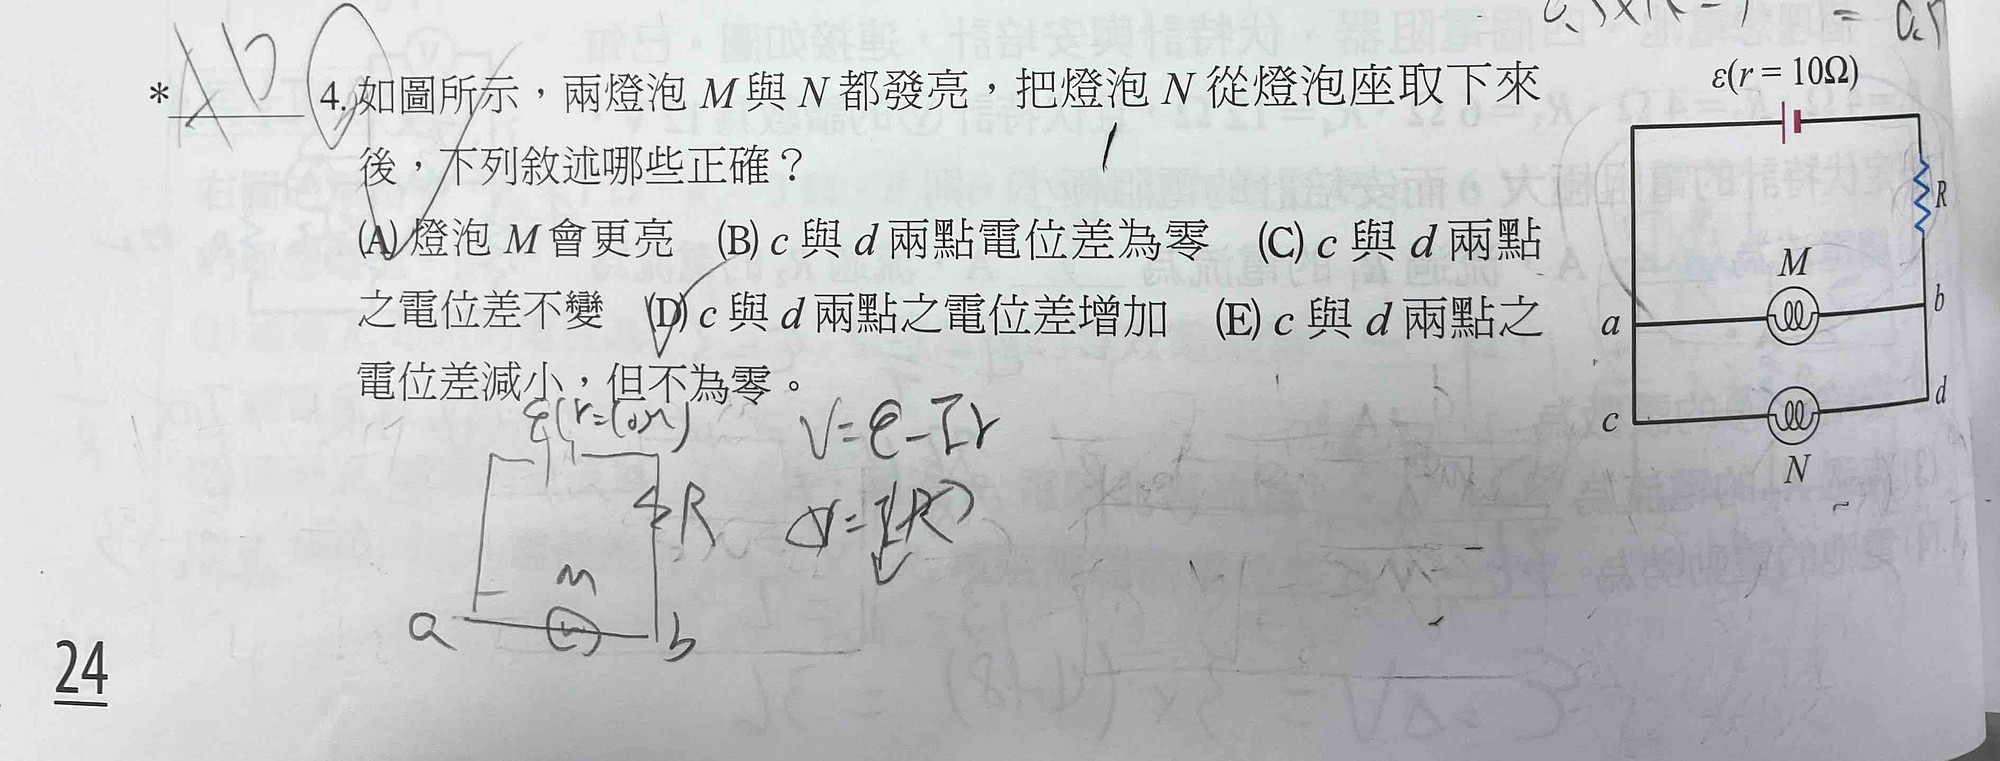 * AD 4. 如圖所示，兩燈泡 M 與 N 都發亮，把燈泡 N 從燈泡座取下來
後，下列敘述哪些正確？
(A) 燈泡 M 會更亮 (B) c 與 d 兩點電位差為零 (C) c 與 d 兩點
之電位差不變 (D) c 與 d 兩點之電位差增加 (E) c 與 d 兩點之
電位差減小，但不為零。
ε(r = 10Ω)
R
M
a
b
c
d
N
ε(r=10Ω)
V=ε-Ir
R
M
a
b
24